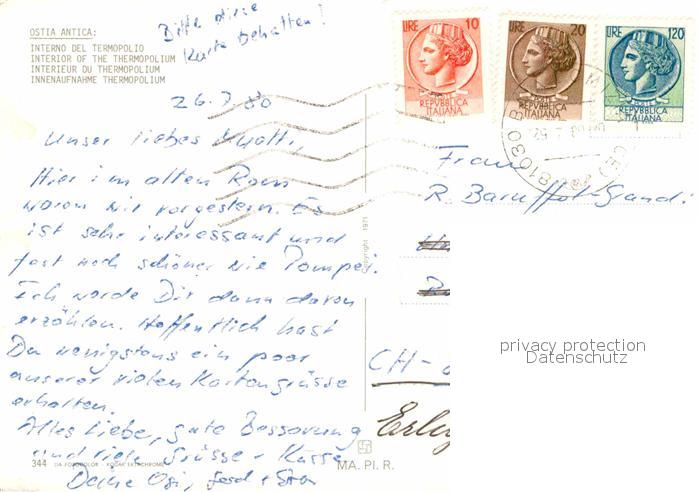 OSTIA ANTICA:
INTERNO DEL TERMOPOLIO
INTERIOR OF THE THERMOPOLIUM
INTERIEUR DU THERMOPOLIUM
INNENAUFNAHME THERMOPOLIUM
Bitte diese
Karte behalten!
LIRE 10
REPVBBLICA
ITALIANA
LIRE 20
REPVBBLICA
ITALIANA
LIRE 120
REPVBBLICA
ITALIANA
80
Unser liebes
Hier im alten Rom
waren wir vorgestern. Es
ist sehr interessant und
fast noch schöner wie Pompei.
Ich werde Dir dann davon
erzählen. Hoffentlich hast
Du wenigstens ein paar
unserer vielen Kartengrüsse
erhalten.
Alles Liebe, gute Besserung
und viele Grüsse + Küsse
Deine
Copyright 1971
Frau
R.
CH-
344 DA FOTOCOLOR - KODAK EKTACHROME
MA. PI. R.
privacy protection
Datenschutz